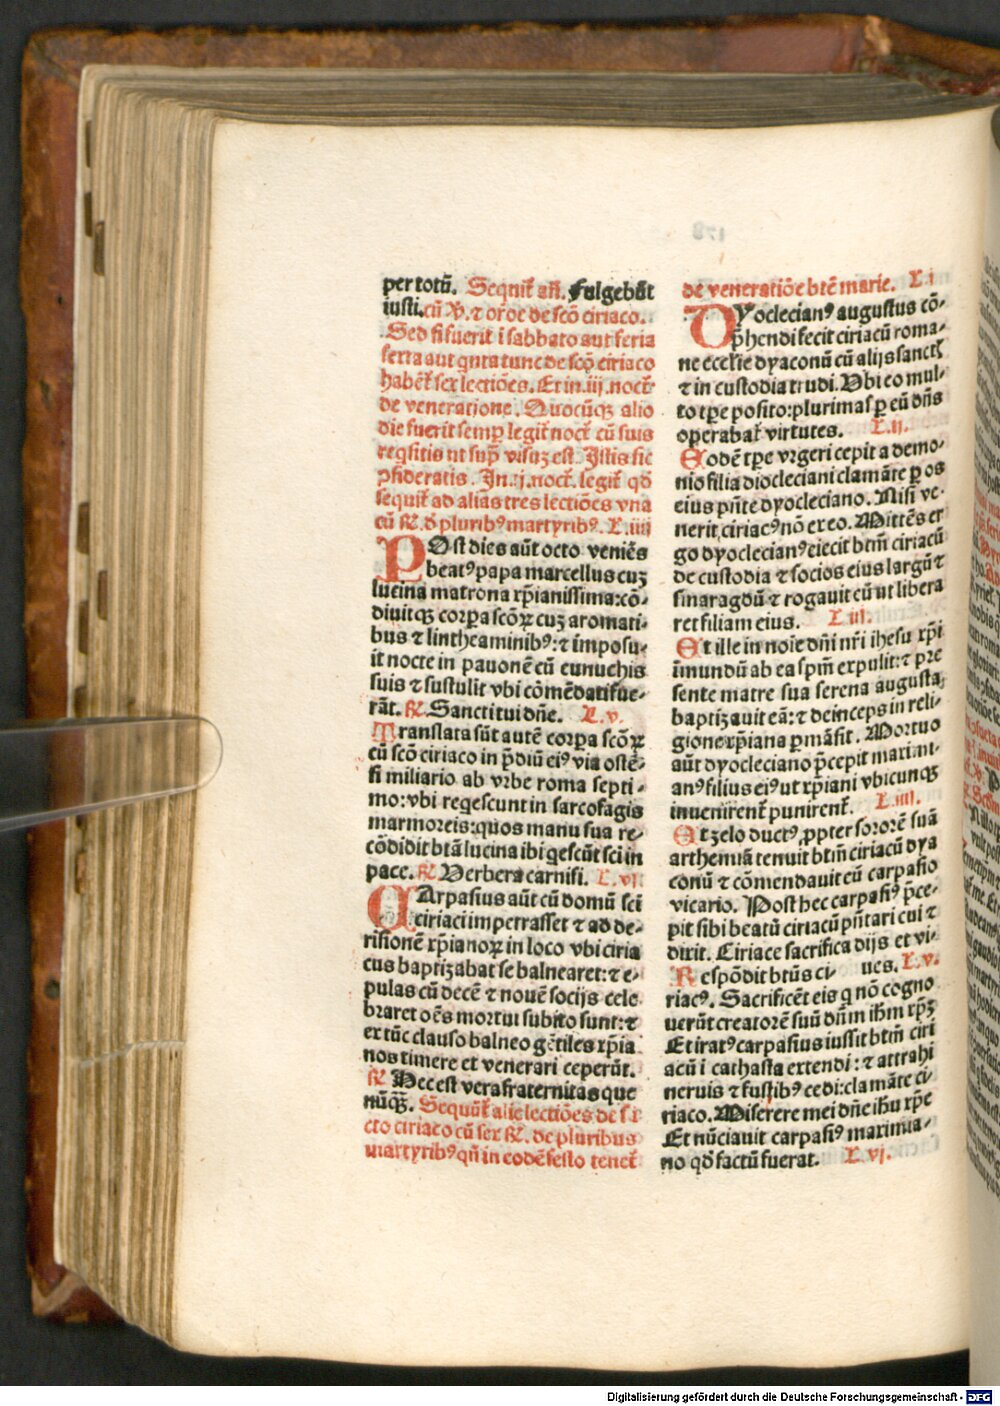 per totū. Sequit᷑ añ. Fulgebūt
iusti. cū ℣. ⁊ or̄oe de scō ciriaco.
Sed si fuerit ī sabbato aut feria
sexta aut qnta tunc de scō ciriaco
habēt᷑ sex lectiōes. Et in .iij. noct᷑
de veneratione. Quocūqꝫ alio
die fuerit semꝑ legit᷑ noct᷑ cū suis
reqsitis ut supͣ visuꝫ est. Istis sic
ꝓsideratis. In .ij. noct᷑. legit᷑ qd̄
sequit᷑ ad alias tres lectiōes vna
cū ℟. d̄ pluribꝰ martyribꝰ. L. iiij
POst dies aūt octo veniēs
beatꝰ papa marcellus cuꝫ
lucina matrona xp̄ianissima: cō-
diuit qꝫ corꝑa scōꝝ cuꝫ aromati-
bus ⁊ lintheaminibꝰ: ⁊ imposu-
it nocte in pauonē cū eunuchis
suis ⁊ sustulit vbi cōmēdati fue-
rāt. ℟. Sancti tui dn̄e. L. v.
Translata sūt autē corꝑa scōꝝ
cū scō ciriaco in p̄diū eiꝰ via ostē-
si miliario ab vrbe roma septi-
mo: vbi reqescunt in sarcofagis
marmoreis: quos manu sua re-
cōdidit btā lucina ibi qescūt sci in
pace. ℟. Verbera carnifi. L. vj.
CArpasius aūt cū domū sci
ciriaci impetrasset ⁊ ad de-
risionē xp̄ianoꝝ in loco vbi ciria
cus baptizabat se balnearet: ⁊ e-
pulas cū decē ⁊ nouē socijs cele
braret oēs mortui subito sunt: ⁊
ex tūc clauso balneo gētiles xp̄ia
nos timere et venerari ceperūt.
℟. Hec est vera fraternitas que
nūqꝫ. Sequūt᷑ alie lectiōes de sā
cto ciriaco cū sex ℟. de pluribus
martyribꝰ qn̄ in eodē festo tenet᷑
de veneratiōe btē marie. L. i
DYoclecianꝰ augustus cō-
p̄hendi fecit ciriacū roma-
ne eccl̄ie dyaconū cū alijs sanctꝭ
⁊ in custodia trudi. Vbi eo mul-
to tꝑe posito: plurimas ꝑ eū dn̄s
operabat᷑ virtutes. L. ij.
Eodē tꝑe vrgeri cepit a demo-
nio filia diocleciani clamāte ꝑ os
eius pn̄te dyocleciano. Nisi ve-
nerit ciriacꝰ nō exeo. Mittēs er
go dyoclecianꝰ eiecit btm̄ ciriacū
de custodia ⁊ socios eius largū ⁊
smaragdū ⁊ rogauit eū ut libera
ret filiam eius. L. iij.
Et ille in noīe dn̄i nr̄i ihesu xp̄i
īmundū ab ea spm̄ expulit: ⁊ pre
sente matre sua serena augusta
baptizauit eā: ⁊ deinceps in reli-
gione xp̄iana ꝑmāsit. Mortuo
aūt dyocleciano p̄cepit maximi-
anꝰ filius eiꝰ ut xp̄iani vbicunqꝫ
inuenirent᷑ punirent᷑. L. iiij.
Et zelo ductꝰ ꝓpter sororē suā
arthemiā tenuit btm̄ ciriacū dya
conū ⁊ cōmendauit eū carpasio
vicario. Post hec carpasiꝰ p̄ce-
pit sibi beatū ciriacū pn̄tari cui ⁊
dixit. Ciriace sacrifica dijs et vi-
Respōdit btūs ci- ues. L. v.
riacꝰ. Sacrificēt eis q nō cogno
uerūt creatorē suū dn̄m ihm̄ xp̄ꝫ
Et iratꝰ carpasius iussit btm̄ ciri
acū ī cathasta extendi: ⁊ attrahi
neruis ⁊ fustibꝰ cedi: clamāte ci-
riaco. Miserere mei dn̄e ihū xp̄e
Et nūciauit carpasiꝰ maximia-
no qd̄ factū fuerat. L. vj.
Digitalisierung gefördert durch die Deutsche Forschungsgemeinschaft - DFG